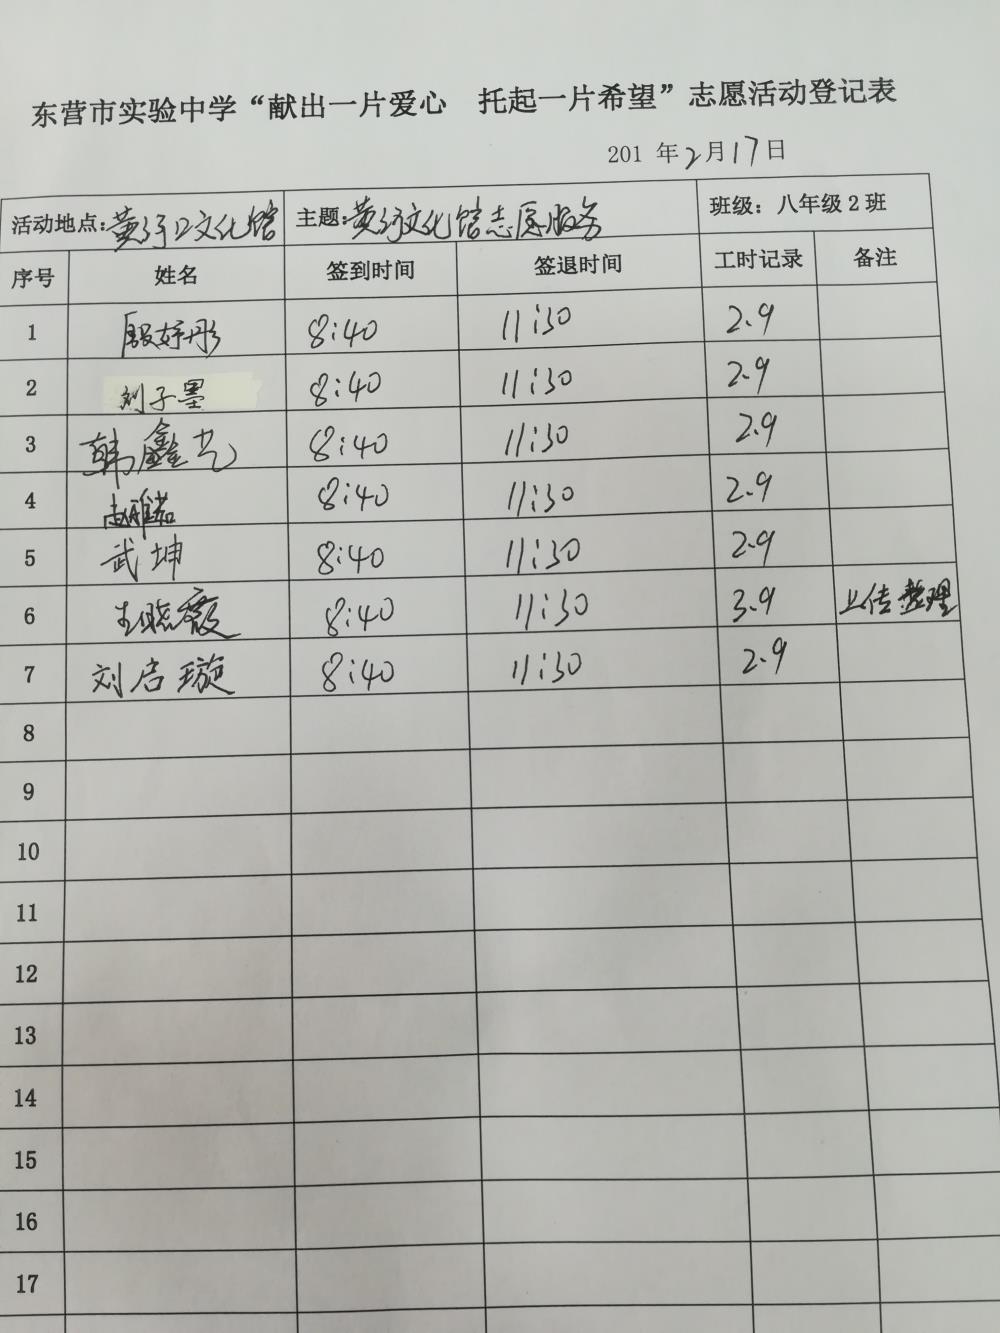 东营市实验中学“献出一片爱心 托起一片希望”志愿活动登记表
201 年2月17日
活动地点:黄河口文化馆 主题:黄河文化馆志愿服务 班级：八年级2班
序号 姓名 签到时间 签退时间 工时记录 备注
1 殷妤彤 8:40 11:30 2.9
2 刘子墨 8:40 11:30 2.9
3 韩鑫艺 8:40 11:30 2.9
4 8:40 11:30 2.9
5 武坤 8:40 11:30 2.9
6 王晓霞 8:40 11:30 3.9 上传整理
7 刘启璇 8:40 11:30 2.9
8
9
10
11
12
13
14
15
16
17